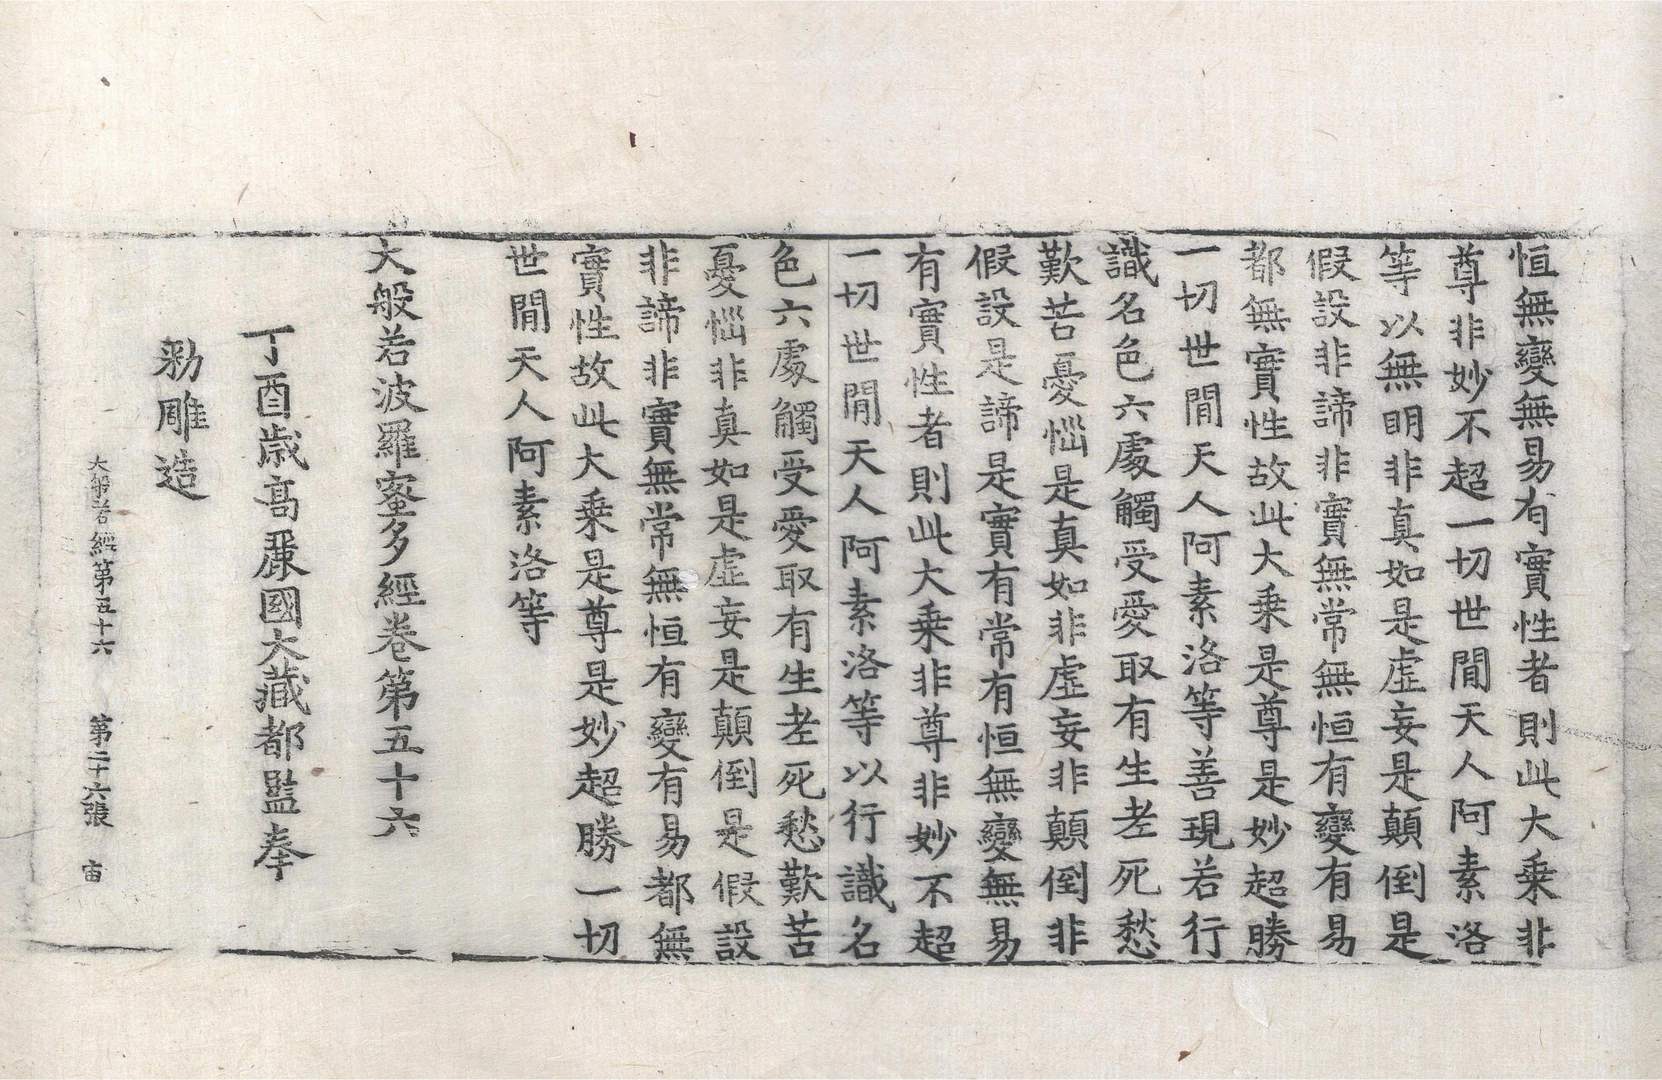 恒無變無易有實性者則此大乘非
尊非妙不超一切世閒天人阿素洛
等以無明非真如是虛妄是顛倒是
假設非諦非實無常無恒有變有易
都無實性故此大乘是尊是妙超勝
一切世閒天人阿素洛等善現若行
識名色六處觸受愛取有生老死愁
歎苦憂惱是真如非虛妄非顛倒非
假設是諦是實有常有恒無變無易
有實性者則此大乘非尊非妙不超
一切世閒天人阿素洛等以行識名
色六處觸受愛取有生老死愁歎苦
憂惱非真如是虛妄是顛倒是假設
非諦非實無常無恒有變有易都無
實性故此大乘是尊是妙超勝一切
世閒天人阿素洛等
大般若波羅蜜多經卷第五十六
丁酉歲高麗國大藏都監奉
勑雕造
大般若經第五十六 第二十六張 宙